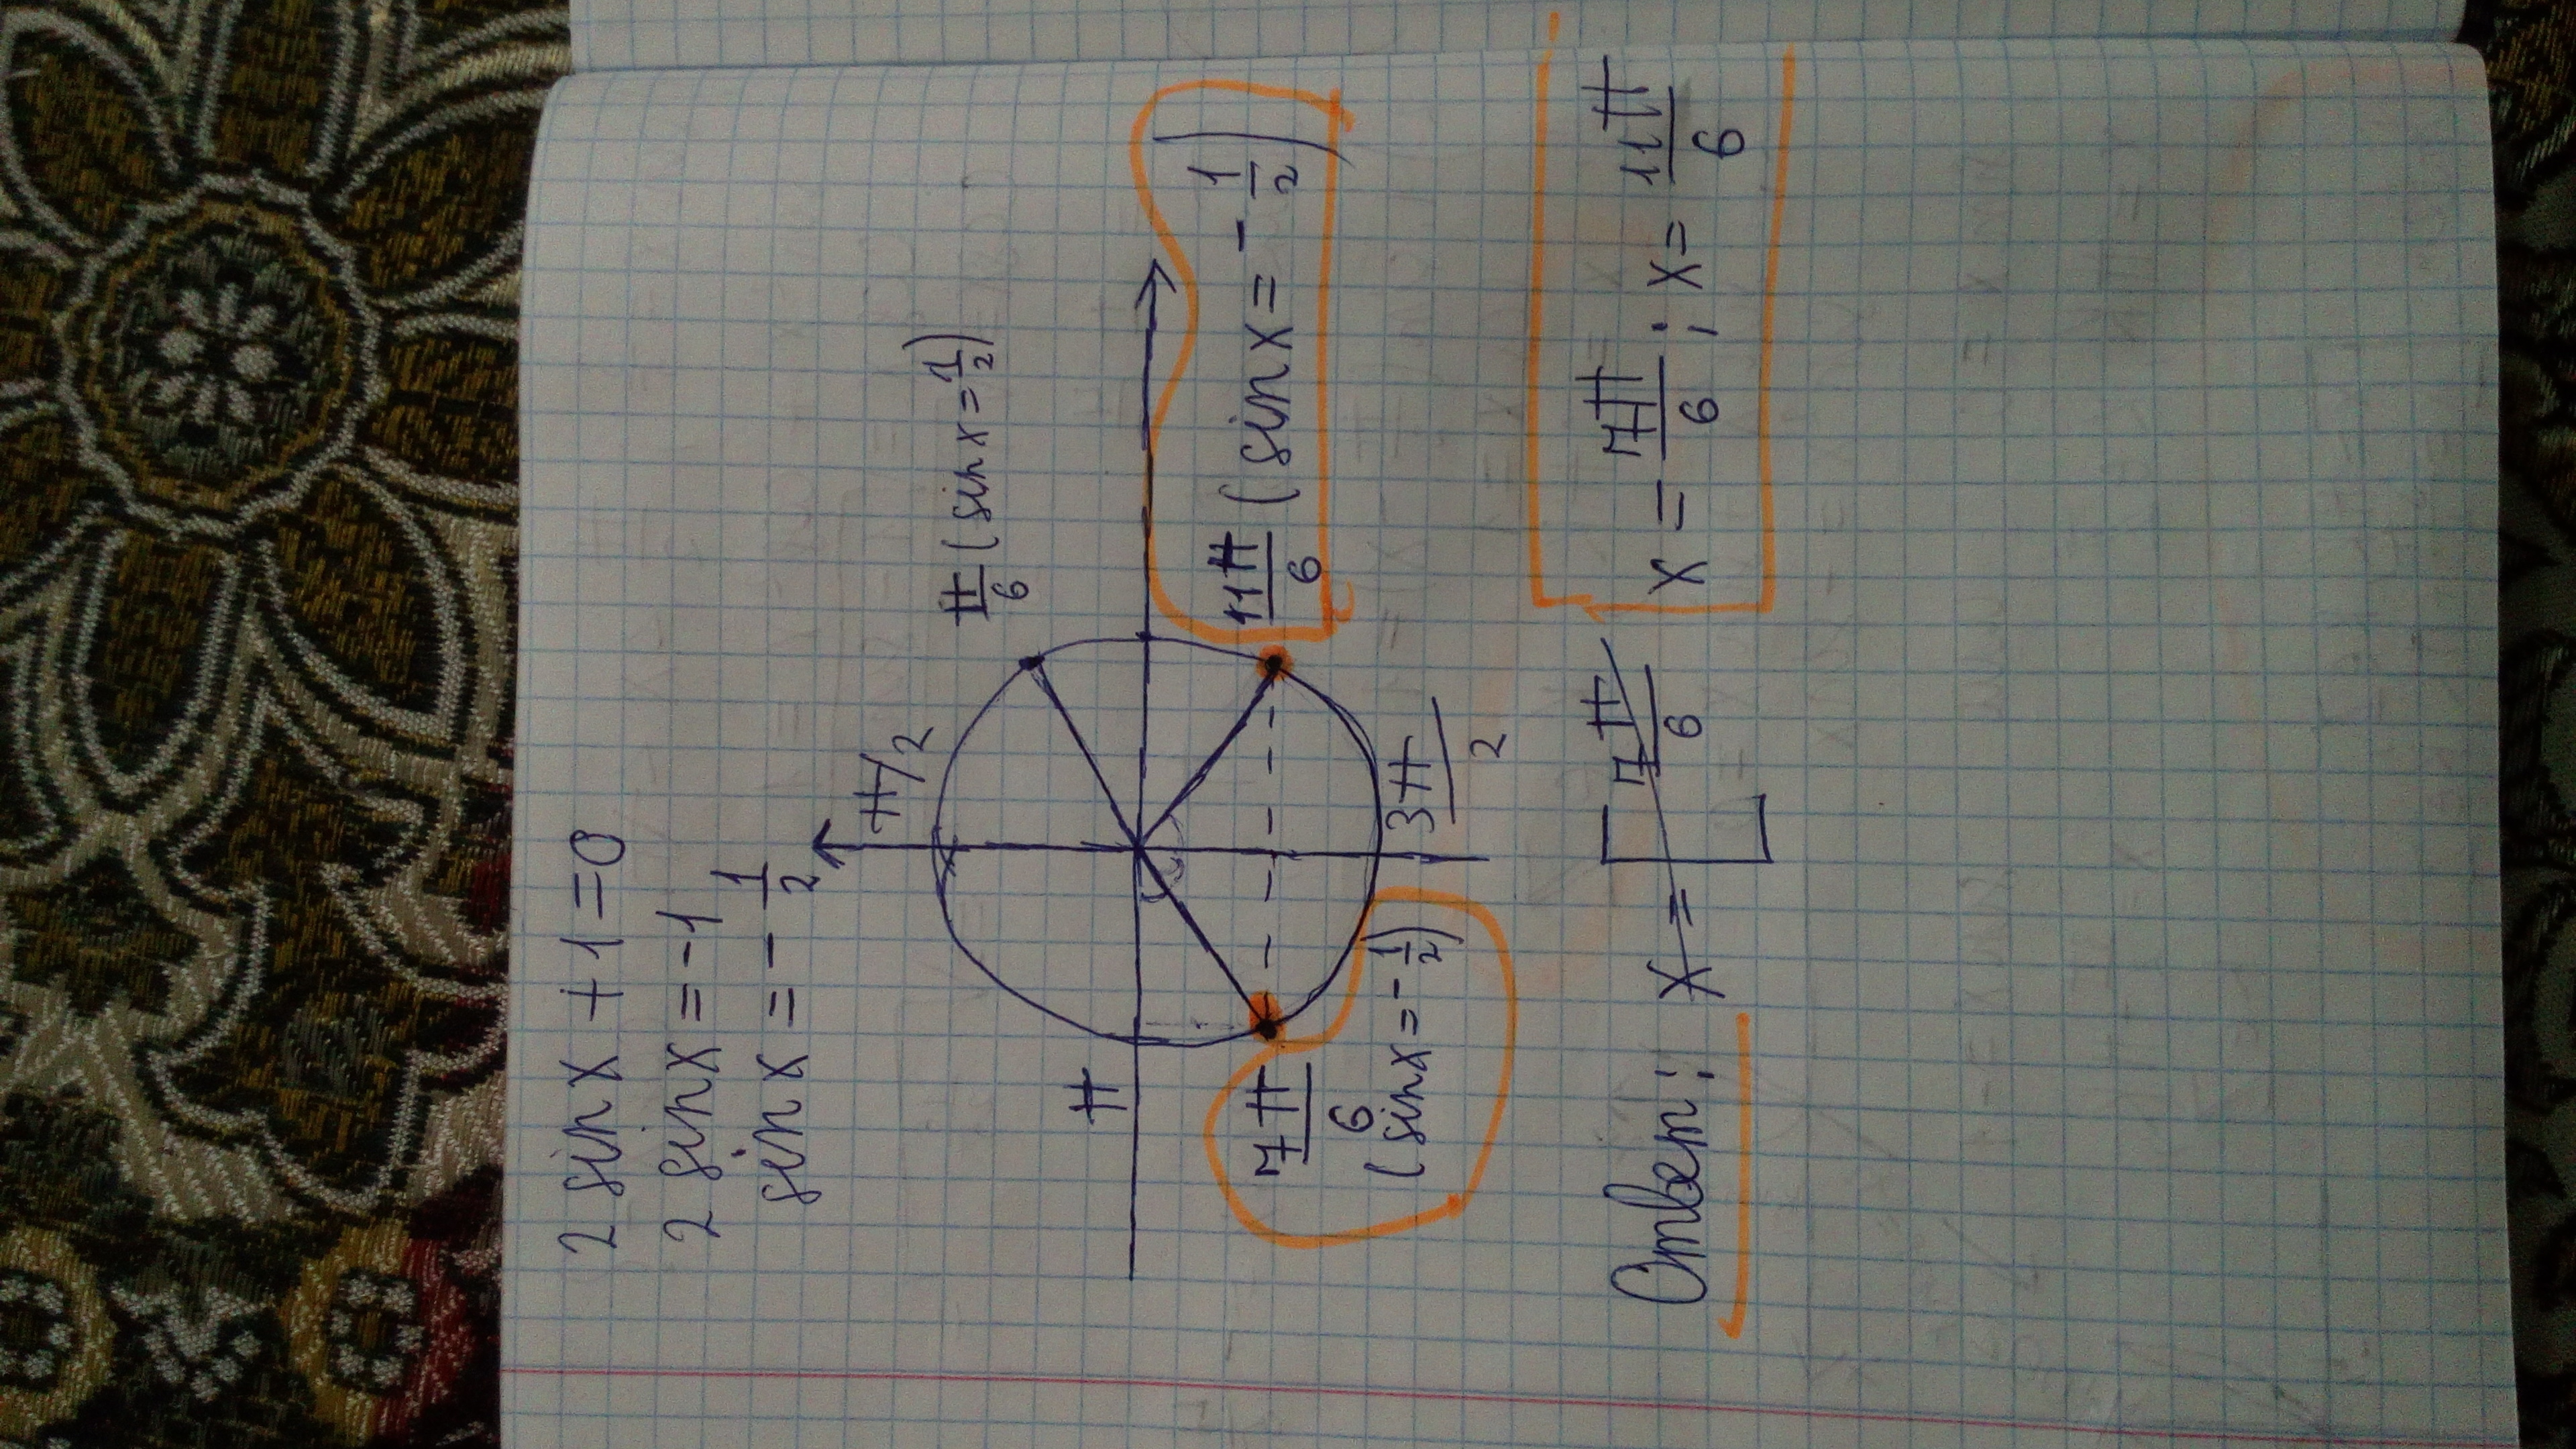 2 sin x + 1 = 0
2 sin x = -1
sin x = - 1/2
π/2
π/6 (sin x = 1/2)
π
7π/6 (sin x = - 1/2)
11π/6 (sin x = - 1/2)
3π/2
Ответ: x = [ 7π/6 x = 7π/6 ; x = 11π/6